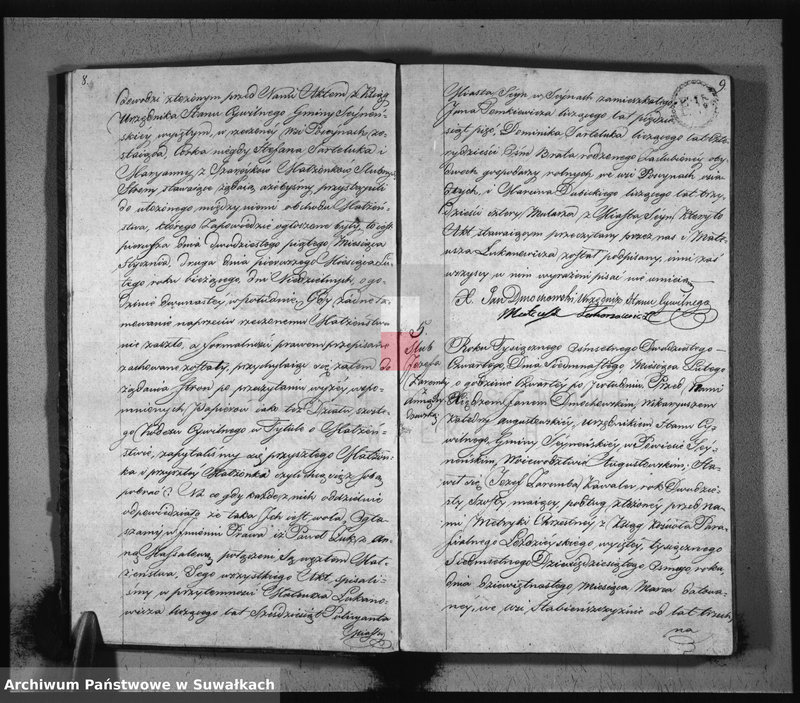 8.
dowodzi złożonym przed Nami Aktem z Xiąg
Urzędnika Stanu Cywilnego Gminy Seyneń-
skiey wyiętym, w rzeczoney wsi Poseynach, zo-
staiącą Córką niegdy Stefana i
Maryanny z Małżonków Slubnych
Strony stawaiące żądaią ażebyśmy przystąpili
do ułożonego między niemi obchodu Małżeń-
stwa, którego Zapowiedzie ogłoszone były, to iest
pierwsza dnia dwudziestego piątego Miesiąca
Stycznia, druga dnia pierwszego Miesiąca Lu-
tego roku bieżącego dni Niedzielnych, o go-
dzinie dwunastey w południe, Gdy żadne ta-
mowanie naprzeciw rzeczonemu Małżeństwu
nie zaszło, a formalności prawem przepisane
zachowane zostały, przychylaiąc się zatem do
żądania Stron po przeczytaniu wyżey wspo-
mnionych Papierów iako też Działu szoste-
go Kodexu Cywilnego w Tytule o Małżeń-
stwie, zapytaliśmy się przyszłego Małżon-
ka i przyszłey Małżonki czyli chcą się z sobą
pobrać? Na co gdy każde z nich oddzielnie
odpowiedziało że taka Ich iest wola, Ogła-
szamy w Imieniu Prawa iż Paweł z An-
ną połączeni są węzłem Mał-
żeństwa. Tego wszystkiego Akt spisali-
śmy w przytomności Mateusza Łukano-
wicza liczącego lat Sześćdziesiąt
Miasta
9
Miasta Seyn w Seynach zamieszkałego
Jana liczącego lat pięćdzie-
siąt pięć, Dominika liczącego lat czter-
dzieści ośm Brata rodzonego Zaślubioney oby-
dwoch gospodarzy rolnych we wsi Poseynach sie-
dzących, i Marcina Dubickiego liczącego lat trzy-
dzieści cztery Mularza z Miasta Seyn, który to
Akt stawaiącym przeczytany przez nas i Mate-
usza Łukanowicza został podpisany, inni zaś
wszyscy w nim wyrażeni pisać nie umieią
X. Jan Dmochowski Urzędnik Stanu Cywilnego
Mateusz
5.
Slub
Józefa
Zaremby
Anną
Roku Tysiącznego Ośmsetnego Dwudziestego
Czwartego, Dnia Siedmnastego Miesiąca Lutego
o godzinie czwartey po południu. Przed Nami
Xiędzem Janem Dmochowskim, Wikaryuszem
Katedry Augustowskiey, Urzędnikiem Stanu Cy-
wilnego, Gminy Seyneńskiey, w Powiecie Sey-
neńskim, Woiewództwie Augustowskim; Sta-
wił się Józef Zaremba Kawaler, rok Dwudzie-
sty Szósty maiący, podług złożoney przed na-
mi Metryki Chrzestney z Xiąg Kościoła Para-
fialnego Łoździeyskiego wyiętey, tysiącznego
Siedmsetnego Dziewięćdziesiątego Ósmego roku
dnia dziewiętnastego Miesiąca Marca datowa-
ney, we wsi od lat trzech
na
Archiwum Państwowe w Suwałkach